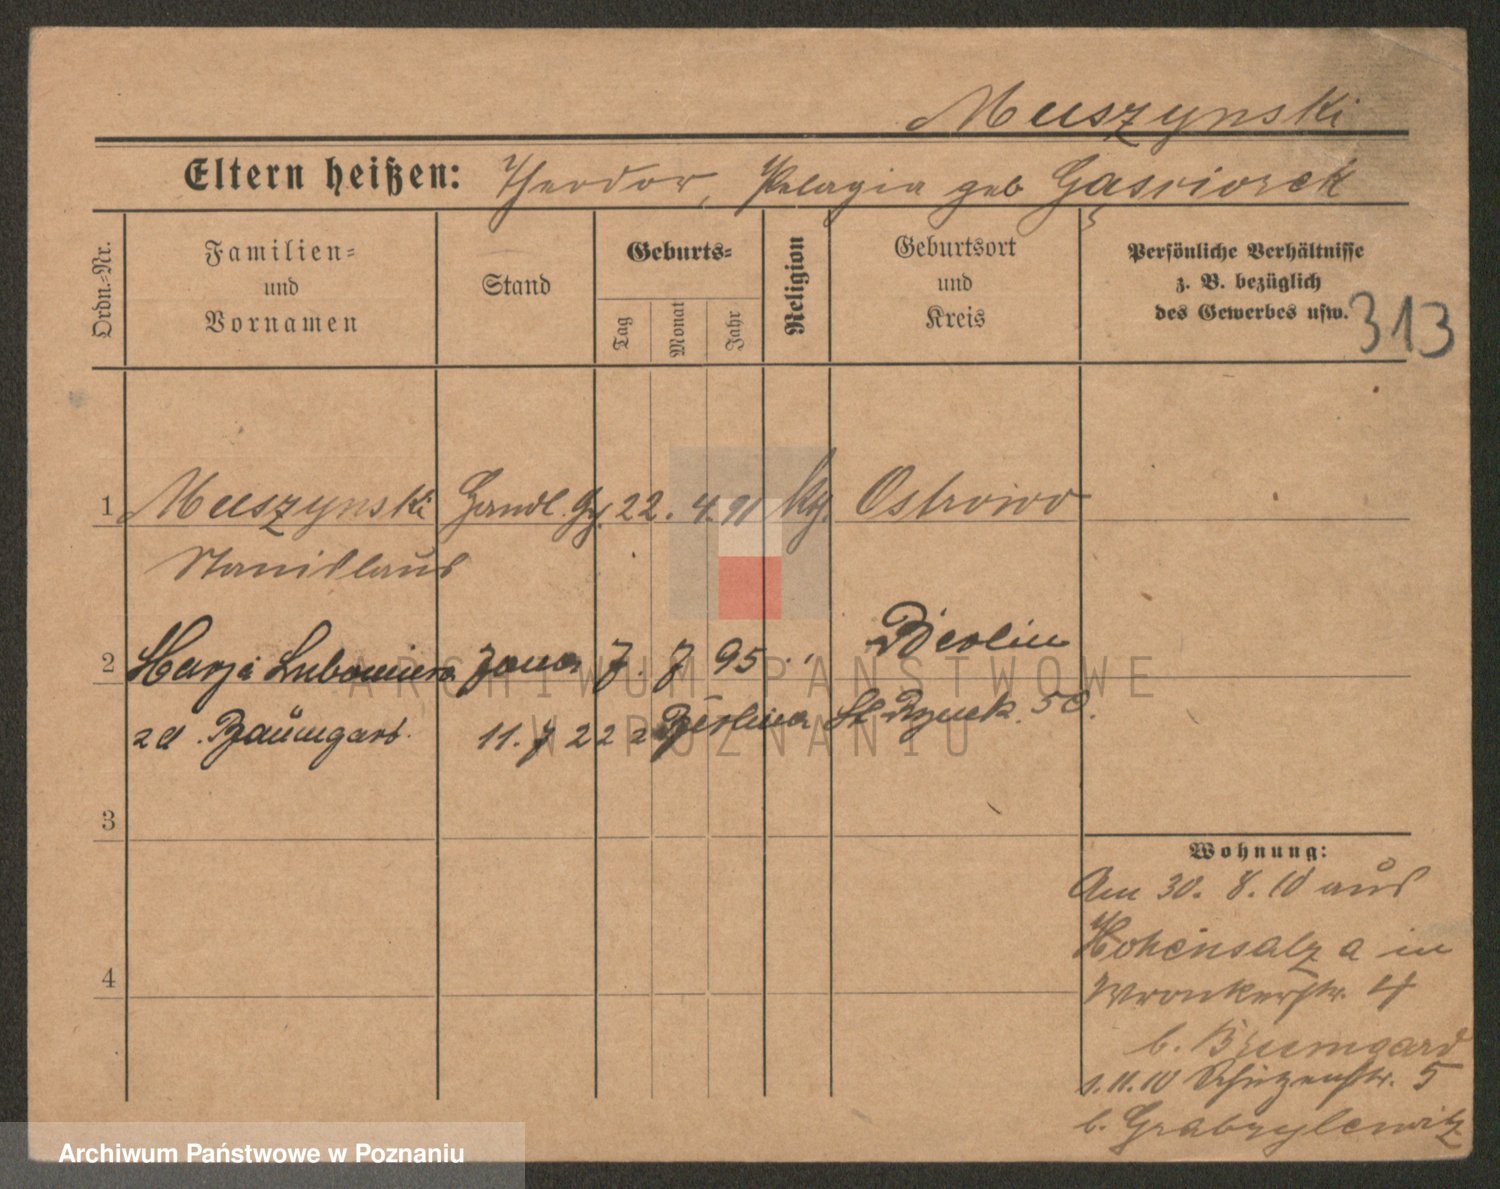 Muszynski
Eltern heißen: Theodor, Pelagia geb Gąsiorek
Ordn.-Nr.
Familien-
und
Vornamen
Stand
Geburts-
Tag
Monat
Jahr
Religion
Geburtsort
und
Kreis
Persönliche Verhältnisse
z. B. bezüglich
des Gewerbes usw.
313
1 Muszynski Handl. Gh. 22. 4. 91 kth. Ostrowo
Stanislaus
2 Marja Lubomira żona 7. 7 95 Berlin
zd. Baumgart 11. 7 22 z Berlina St. Rynek. 50.
3
4
Wohnung:
Am 30. 8. 10 aus
Hohensalza in
Wronkerstr. 4
b. Baumgard
1.11.10 Schützenstr. 5
b.
ARCHIWUM PAŃSTWOWE
W POZNANIU
Archiwum Państwowe w Poznaniu